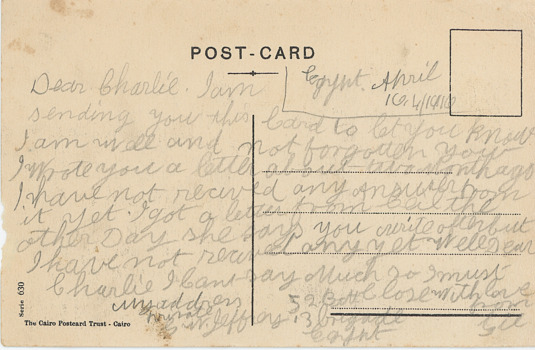 POST-CARD
Egypt. April
Dear Charlie. I am
sending you this Card to let you know
I am well and not forgotten you
I wrote you a letter about two months ago
I have not received any answer from
it yet I got a letter from the
other Day she says you write often but
I have not received any yet well Dear
Charlie I Cant say Much So I must
close with love
from
My address
Private
Jeffery
13 Brigade
Egypt
Serie 630
The Cairo Postcard Trust - Cairo